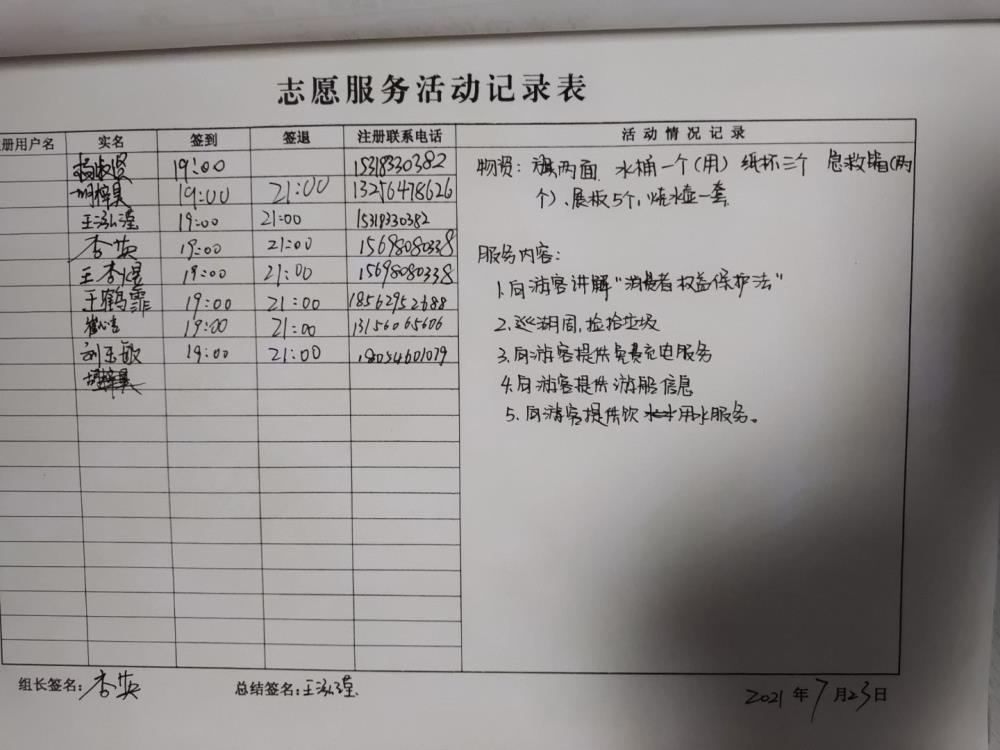 志愿服务活动记录表
册用户名 实名 签到 签退 注册联系电话 活动情况记录
杨淑贤 19:00 15318330382
胡梓昊 19:00 21:00 13256478626
王泓滢 19:00 21:00 15319330382
李英 19:00 21:00 15698080338
王李煜 19:00 21:00 15698080338
王鹤霏 19:00 21:00 18562952688
19:00 21:00 13156065606
刘玉敏 19:00 21:00 18054601079
物资：旗两面 水桶一个（用）纸杯三个 急救箱（两
个）、展板5个，烧水壶一套
服务内容：
1.向游客讲解“消费者权益保护法”
2.巡湖周，捡拾垃圾
3.向游客提供免费充电服务
4.向游客提供游船信息
5.向游客提供饮用水服务。
组长签名：李英 总结签名：王泓滢
2021年7月23日